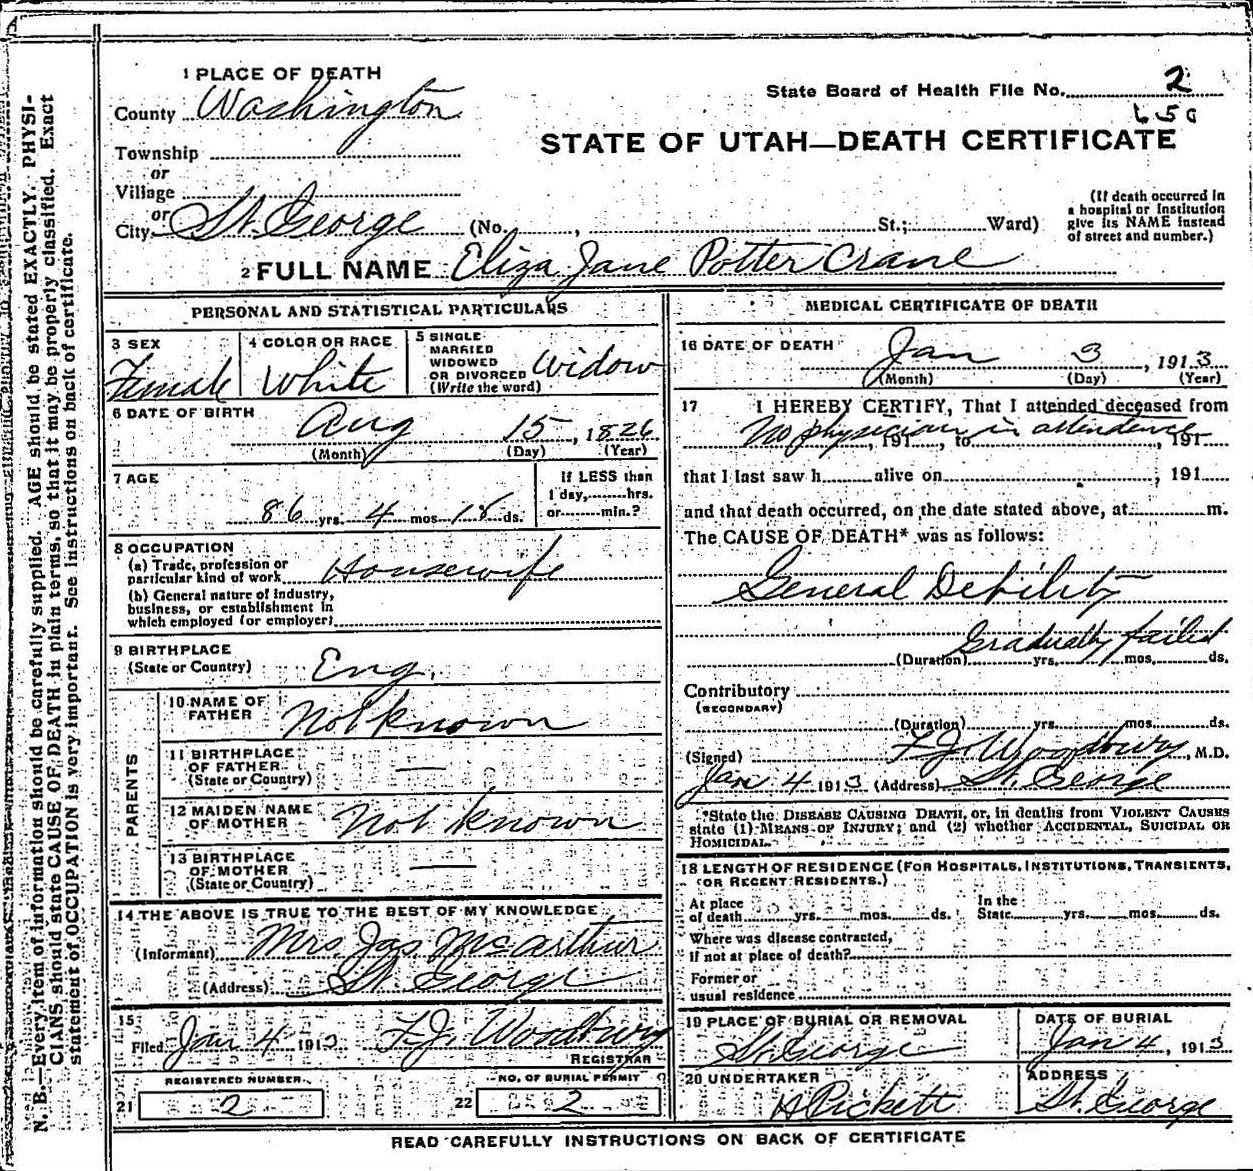 1 PLACE OF DEATH
County Washington
Township
or
Village
or
City St. George (No. , St.; Ward)
State Board of Health File No. 2
650
STATE OF UTAH—DEATH CERTIFICATE
(If death occurred in
a hospital or institution
give its NAME instead
of street and number.)
2 FULL NAME Eliza Jane Potter Crane
PERSONAL AND STATISTICAL PARTICULARS
3 SEX
Female
4 COLOR OR RACE
White
5 SINGLE
MARRIED
WIDOWED
OR DIVORCED
(Write the word)
Widow
6 DATE OF BIRTH
Aug 15, 1826
(Month) (Day) (Year)
7 AGE
86 yrs. 4 mos. 18 ds.
If LESS than
1 day, hrs.
or min.?
8 OCCUPATION
(a) Trade, profession or
particular kind of work Housewife
(b) General nature of industry,
business, or establishment in
which employed (or employer)
9 BIRTHPLACE
(State or Country) Eng.
PARENTS
10 NAME OF
FATHER Not known
11 BIRTHPLACE
OF FATHER
(State or Country) —
12 MAIDEN NAME
OF MOTHER Not known
13 BIRTHPLACE
OF MOTHER
(State or Country) —
14 THE ABOVE IS TRUE TO THE BEST OF MY KNOWLEDGE
(Informant) Mrs Jas. McArthur
(Address) St. George
15
Filed Jan 4 1913 F.J. Woodbury
REGISTRAR
REGISTERED NUMBER
21 2
NO. OF BURIAL PERMIT
22 2
MEDICAL CERTIFICATE OF DEATH
16 DATE OF DEATH
Jan 3, 1913
(Month) (Day) (Year)
17 I HEREBY CERTIFY, That I attended deceased from
, 191 , to , 191
No physician in attendence
that I last saw h alive on , 191
and that death occurred, on the date stated above, at m.
The CAUSE OF DEATH* was as follows:
General Debility
Gradually failed
(Duration) yrs. mos. ds.
Contributory
(SECONDARY)
(Duration) yrs. mos. ds.
(Signed) F.J. Woodbury, M.D.
Jan 4 1913 (Address) St. George
*State the DISEASE CAUSING DEATH, or, in deaths from VIOLENT CAUSES
state (1) MEANS OF INJURY; and (2) whether ACCIDENTAL, SUICIDAL OR
HOMICIDAL.
18 LENGTH OF RESIDENCE (FOR HOSPITALS, INSTITUTIONS, TRANSIENTS,
OR RECENT RESIDENTS.)
At place
of death yrs. mos. ds.
In the
State yrs. mos. ds.
Where was disease contracted,
if not at place of death?
Former or
usual residence
19 PLACE OF BURIAL OR REMOVAL
St. George
DATE OF BURIAL
Jan 4, 1913
20 UNDERTAKER
H Pickett
ADDRESS
St. George
READ CAREFULLY INSTRUCTIONS ON BACK OF CERTIFICATE
N. B.—Every item of information should be carefully supplied. AGE should be stated EXACTLY. PHYSI-
CIANS should state CAUSE OF DEATH in plain terms, so that it may be properly classified. Exact
statement of OCCUPATION is very important. See instructions on back of certificate.